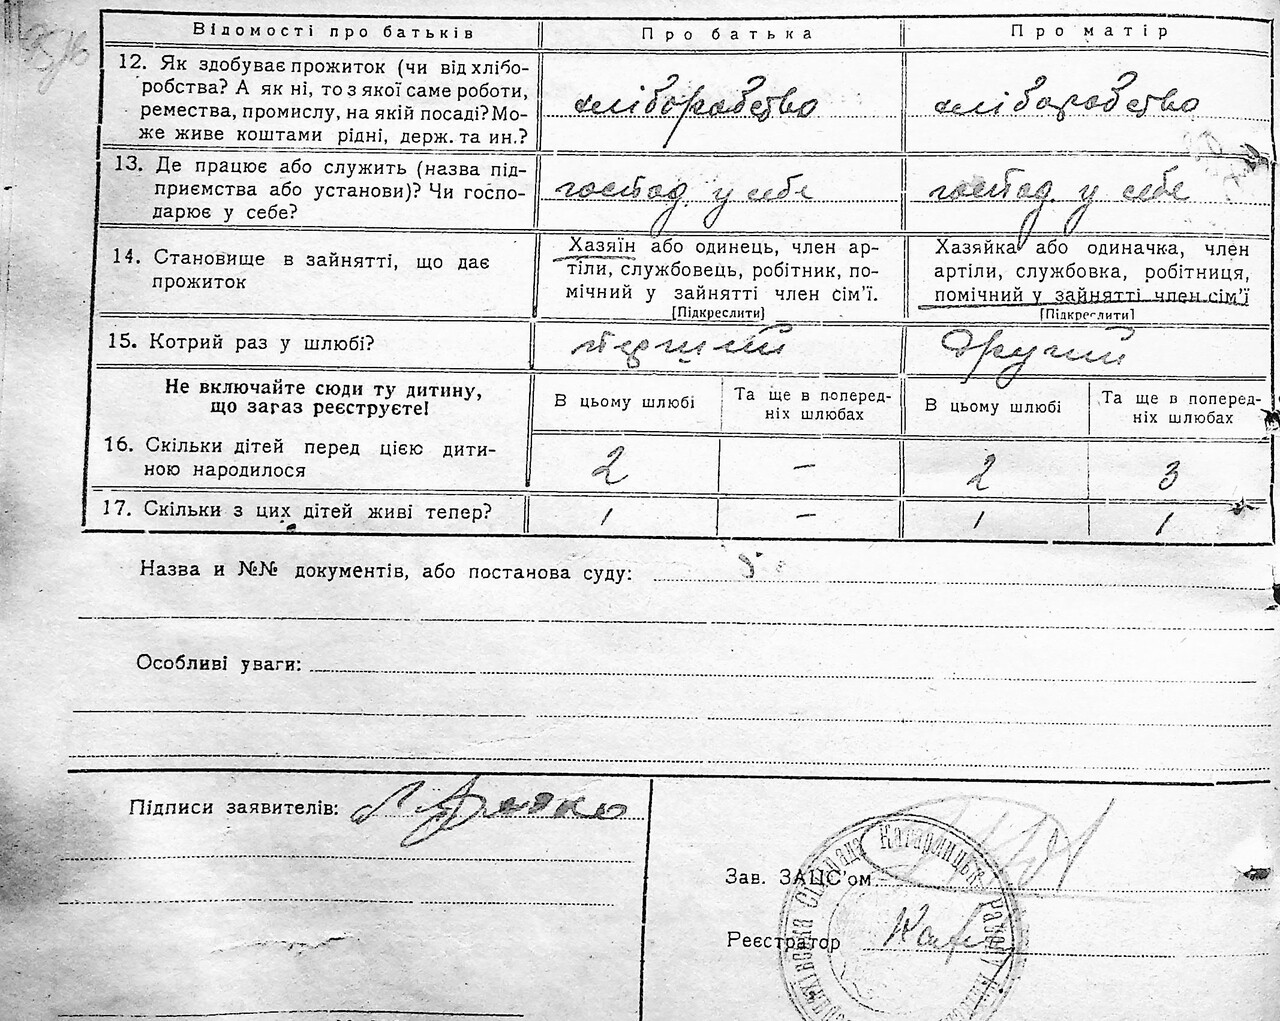 Відомості про батьків
Про батька
Про матір
12. Як здобуває прожиток (чи від хлібо-
робства? А як ні, то з якої саме роботи,
ремества, промислу, на якій посаді? Мо-
же живе коштами рідні, держ. та ин.?
хліборобство
хліборобство
13. Де працює або служить (назва під-
приємства або установи)? Чи госпо-
дарює у себе?
господ. у себе
господ. у себе
14. Становище в зайнятті, що дає
прожиток
Хазяїн або одинець, член ар-
тіли, службовець, робітник, по-
мічний у зайнятті член сім’ї.
[Підкреслити]
Хазяйка або одиначка, член
артіли, службовка, робітниця,
помічний у зайнятті член сім’ї
[Підкреслити]
15. Котрий раз у шлюбі?
перший
другий
Не включайте сюди ту дитину,
що загаз реєструєте!
В цьому шлюбі
Та ще в поперед-
ніх шлюбах
В цьому шлюбі
Та ще в поперед-
ніх шлюбах
16. Скільки дітей перед цією дити-
ною народилося
2
–
2
3
17. Скільки з цих дітей живі тепер?
1
–
1
1
Назва и №№ документів, або постанова суду:
Особливі уваги:
Підписи заявителів:
Зав. ЗАЦС’ом
Реєстратор